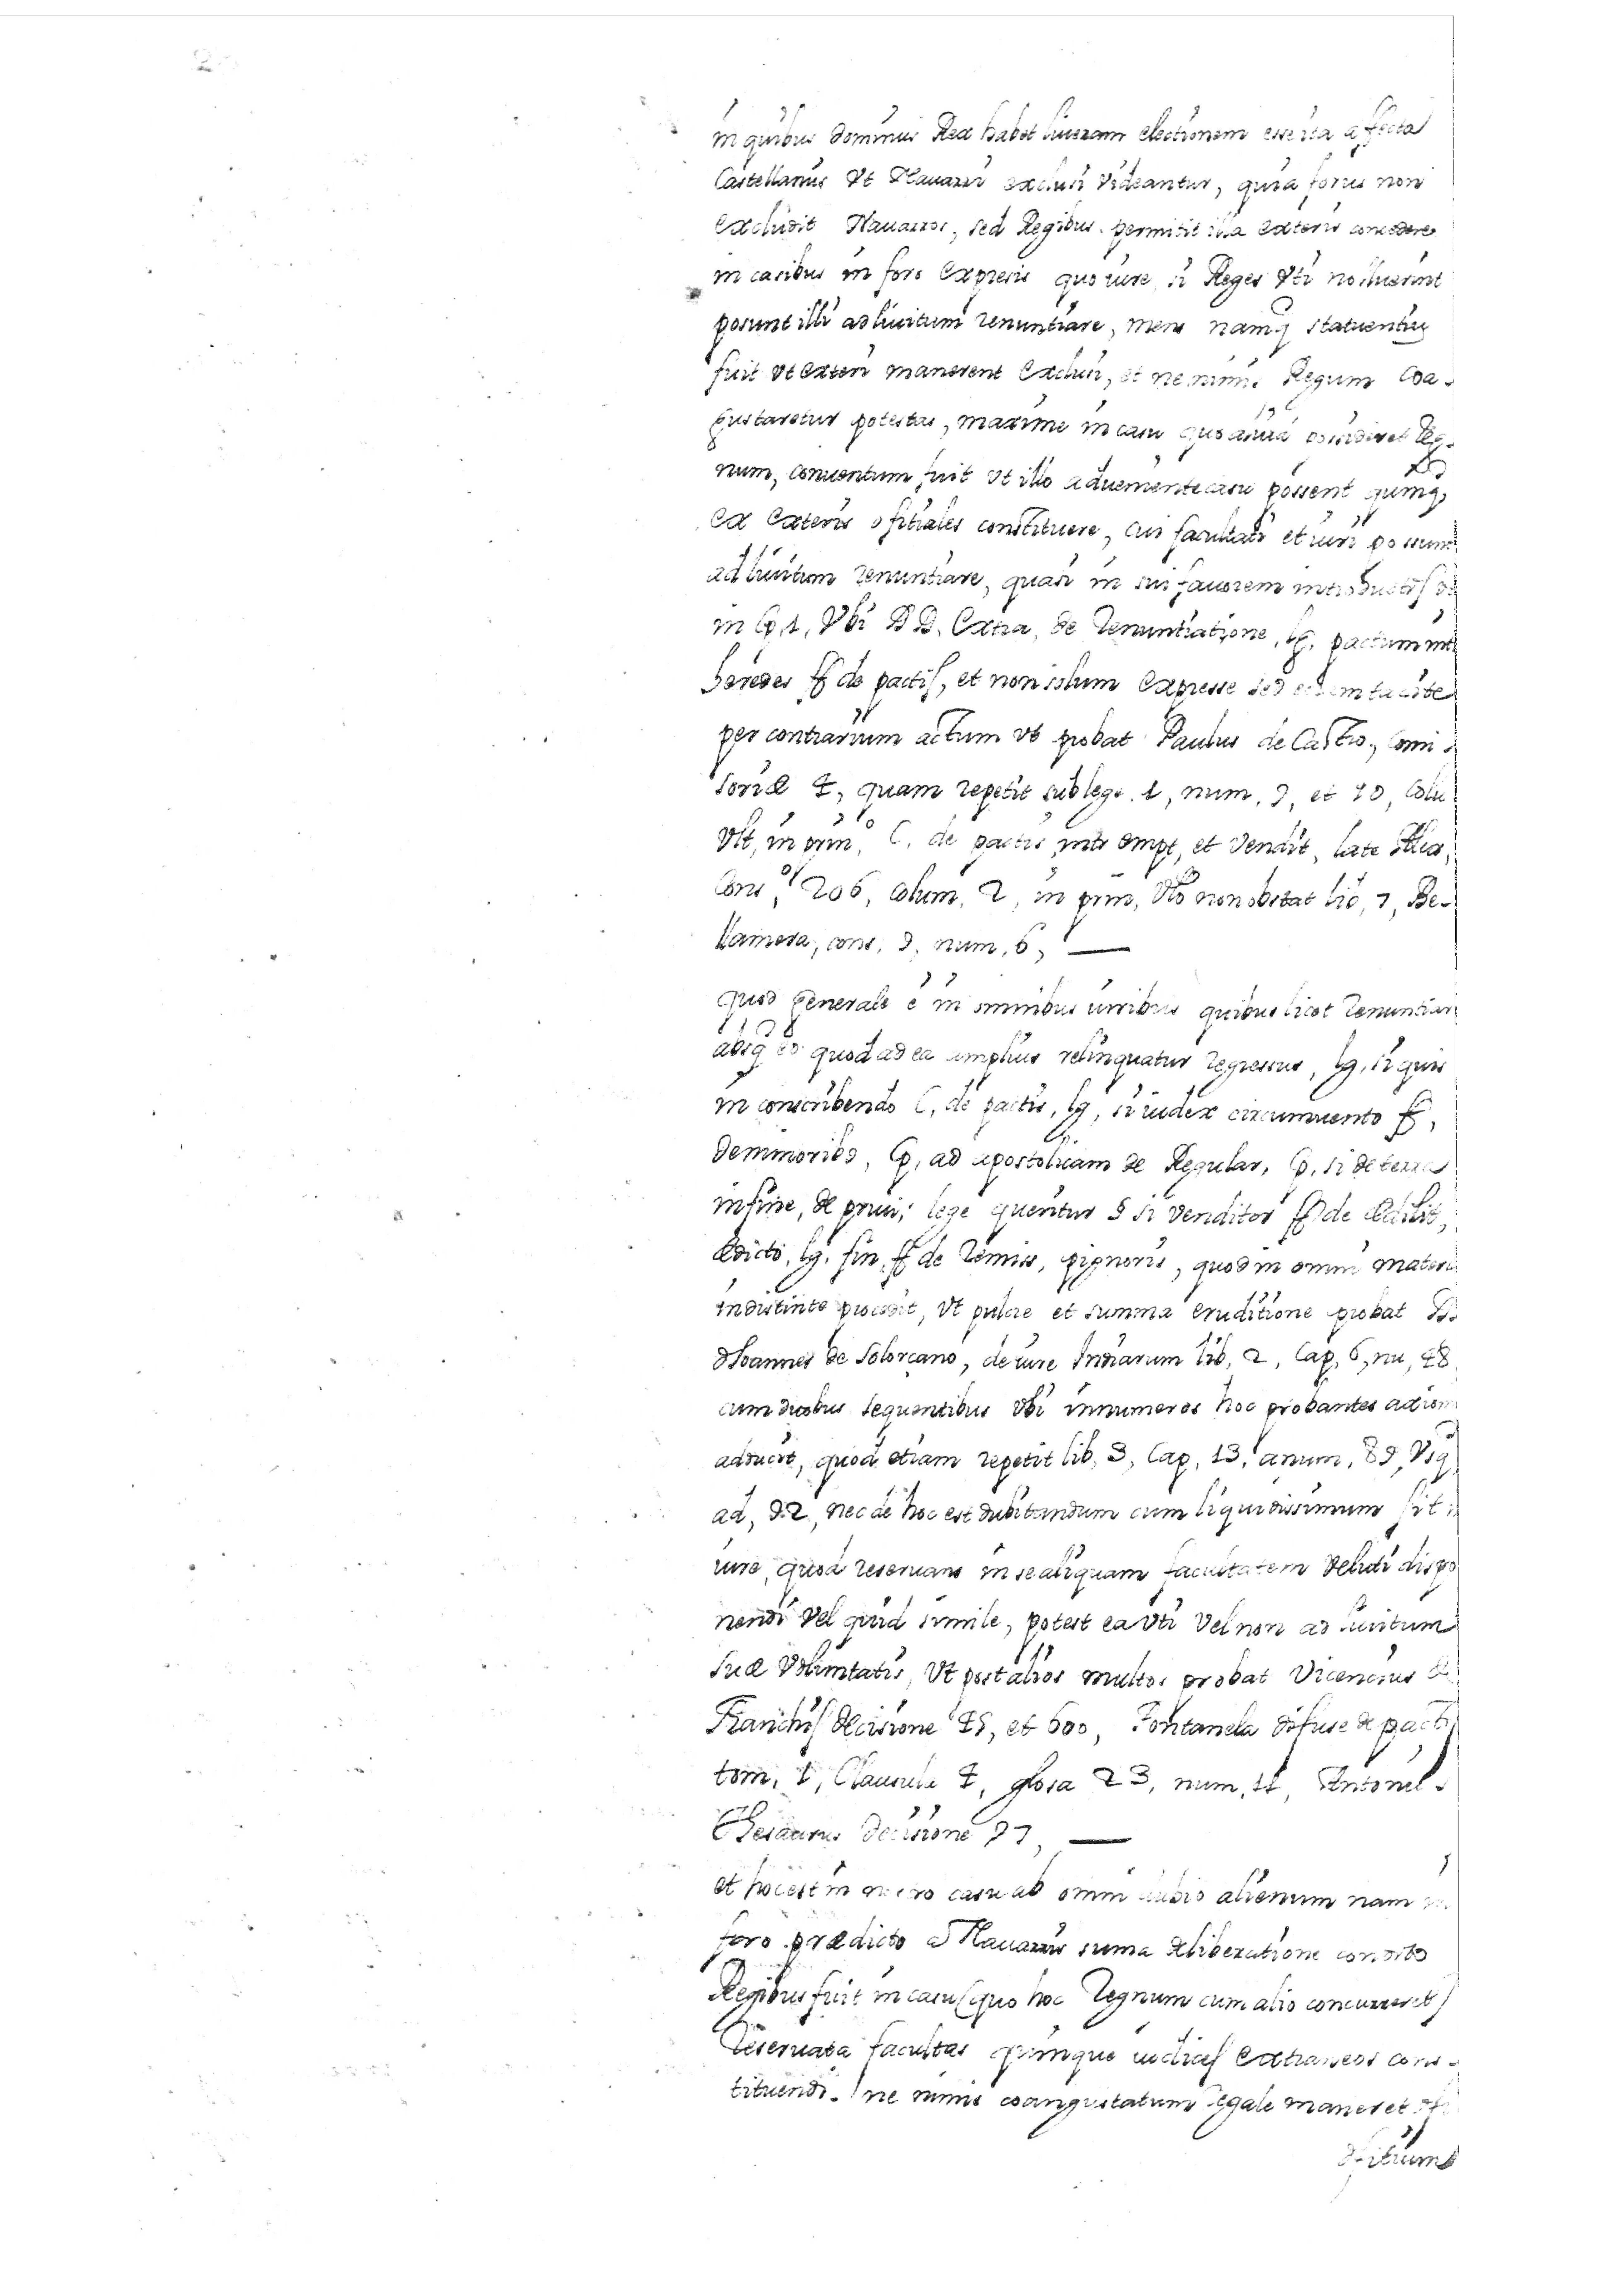 in quibus dominus Rex habet liueram electionem esse ita affecta
Castellanis Vt Nauarri exclusi Videantur, quia forus non
excludit Nauarros, sed Regibus permitit illa exteris concedere
in casibus in foro expresis quo iure si Reges Vti noluerint
posunt illi ad liuitum renuntiare, mens namq statuentiu
fuit Vt exteri manerent exclusi, et ne nimis Regum Coa-
gustaretur potestas, maxime in casu quo Reg-
num, conuentum fuit Vt illo adueniente casu possent quinq
ex exteris ofitiales constituere, cui facultati et iuri possunt
ad liuitum renuntiare, quasi in sui fauorem introductis
in Cp, 1, Vbi DD. Extra, de renuntiatione, lg, pactum int
heredes ff de pactis, et non solum expresse sed etiam tacite
per contrarium actum Vt probat Paulus de Castro, Comi-
soriæ 4, quam repetit sub lege, 1, num, 9, et 10, Colu
Vlt, in prin, C, de pactis inter empt, et Vendit, late
Cons, 206, Colum, 2, in prin, Vo non obstat lib, 7, Be-
llamera, cons, 9, num, 6,
quod generale e in omnibus iuribus quibus licet renuntiar
absq eo quod ad ea amplius relinquatur regressus, lg, si quis
in conscribendo C, de pactis, lg, si iudex circumuento ff,
de minoribs, Cp, ad apostolicam de Regular, Cp, si de terra
in fine, de priui, lege queritur § si Venditor ff de Ædilit,
Ædicto, lg, fin, ff de remiss, pignoris, quod in omni materi
indistinte procedit, Vt pulcre et summa eruditione probat D.
Joannes de Solorçano, de iure Indiarum lib, 2, Cap, 6, nu, 48
cum duobus sequentibus Vbi innumeros hoc probantes axiom
adducit, quod etiam repetit lib, 3, Cap, 13, a num, 89, Vsq
ad, 92, nec de hoc est dubitandum cum liquidissimum sit
iure, quod reseruans in se aliquam facultatem dispo
nendi Vel quid simile, potest ea Vti Vel non ad liuitum
suæ Voluntatis, Vt post alios multos probat Vicencius de
Franchis decisione 45, et 600, Fontanela difuse de pacti
tom, 1, Clausula 4, glosa 23, num, 11, Antonel-
Thesaurus decisione 97,
et hoc est in casu ab omni dubio alienum nam
foro prædicto a Nauarris suma deliberatione condito
Regibus fuit in casu (quo hoc regnum cum alio concurreret)
reseruata facultas quinque iudices extraneos cons-
tituendi ne nimis coangustatum regale maneret